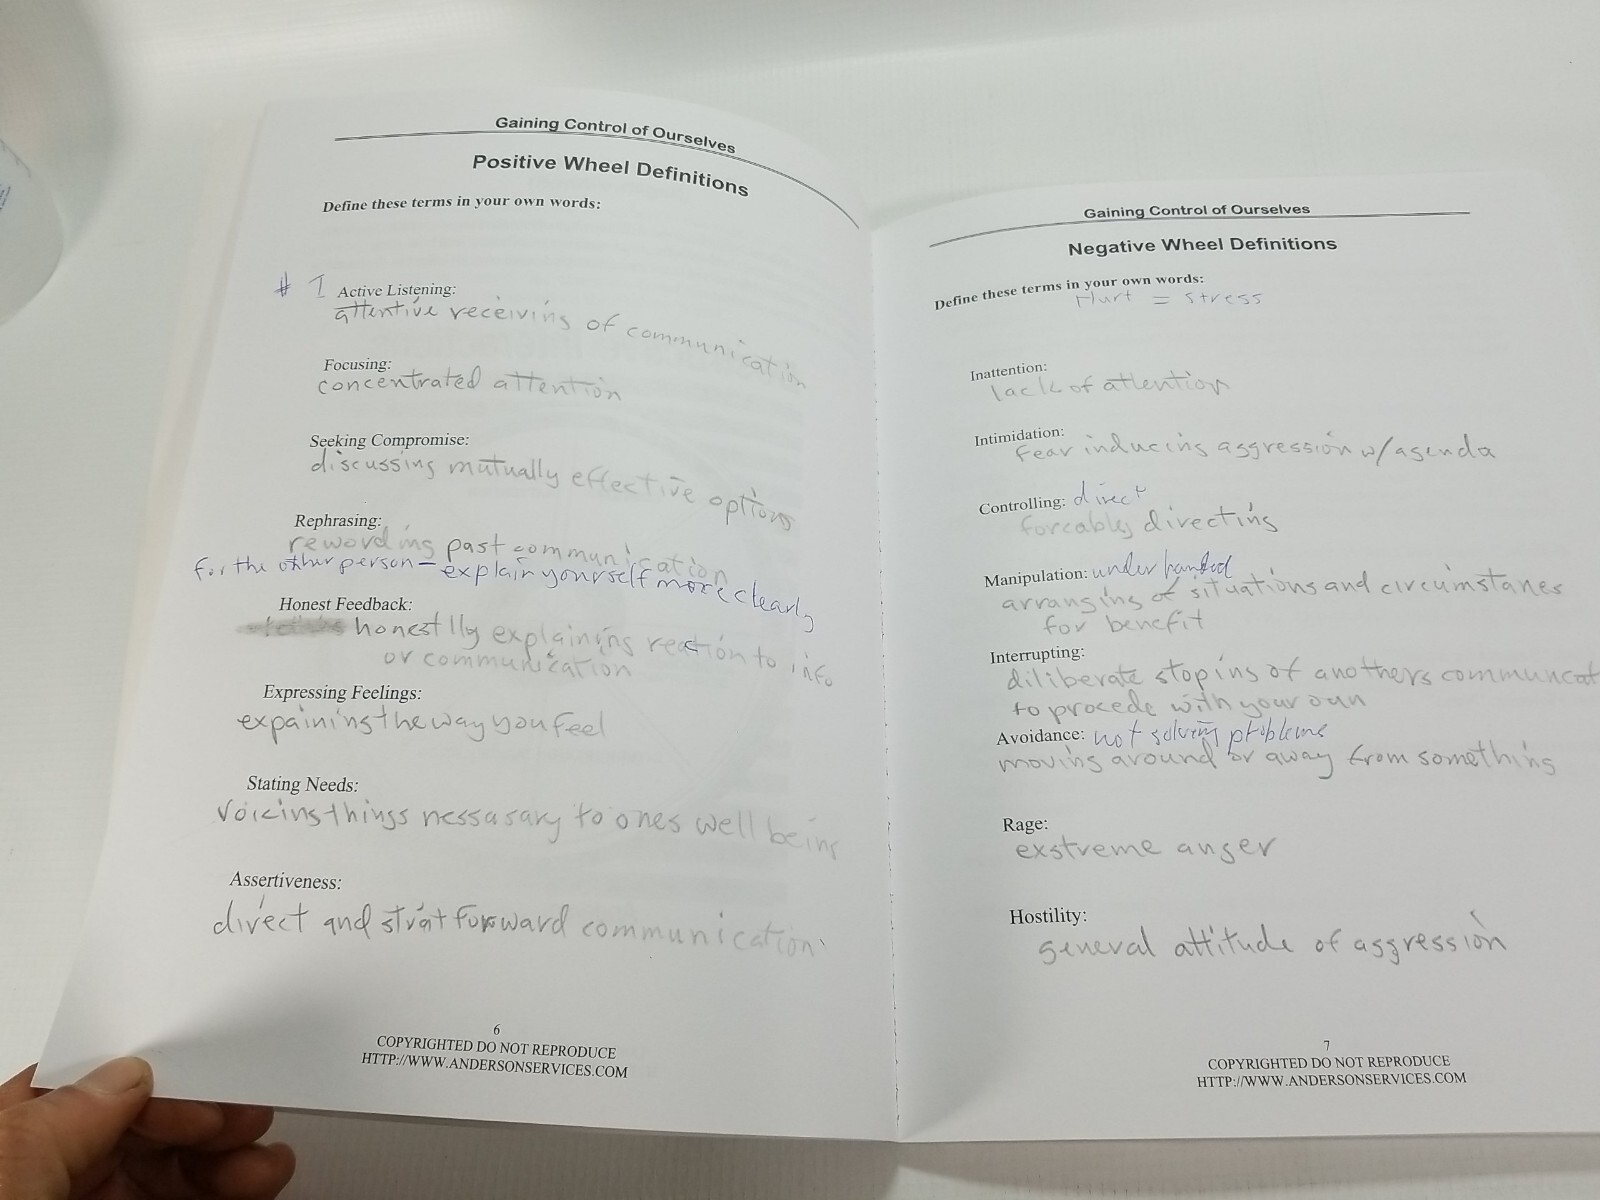 Gaining Control of Ourselves
Positive Wheel Definitions
Define these terms in your own words:
# 1 Active Listening:
attentive receiving of communication
Focusing:
concentrated attention
Seeking Compromise:
discussing mutually effective options
Rephrasing:
rewording past communication
for the other person - explain yourself more clearly
Honest Feedback:
honestlly explaining reaction to info
or communication
Expressing Feelings:
expaining the way you feel
Stating Needs:
Voicing things nessasary to ones well being
Assertiveness:
direct and strat forward communication.
6
COPYRIGHTED DO NOT REPRODUCE
HTTP://WWW.ANDERSONSERVICES.COM
Gaining Control of Ourselves
Negative Wheel Definitions
Define these terms in your own words:
Hurt = stress
Inattention:
lack of attention
Intimidation:
Fear inducing aggression w/agenda
Controlling: direct
forcably directing
Manipulation: under handed
arranging of situations and circumstanes
for benefit
Interrupting:
diliberate stoping of anothers communcat
to procede with your own
Avoidance: not solving problems
moving around or away from something
Rage:
exstreme anger
Hostility:
general attitude of aggression
7
COPYRIGHTED DO NOT REPRODUCE
HTTP://WWW.ANDERSONSERVICES.COM